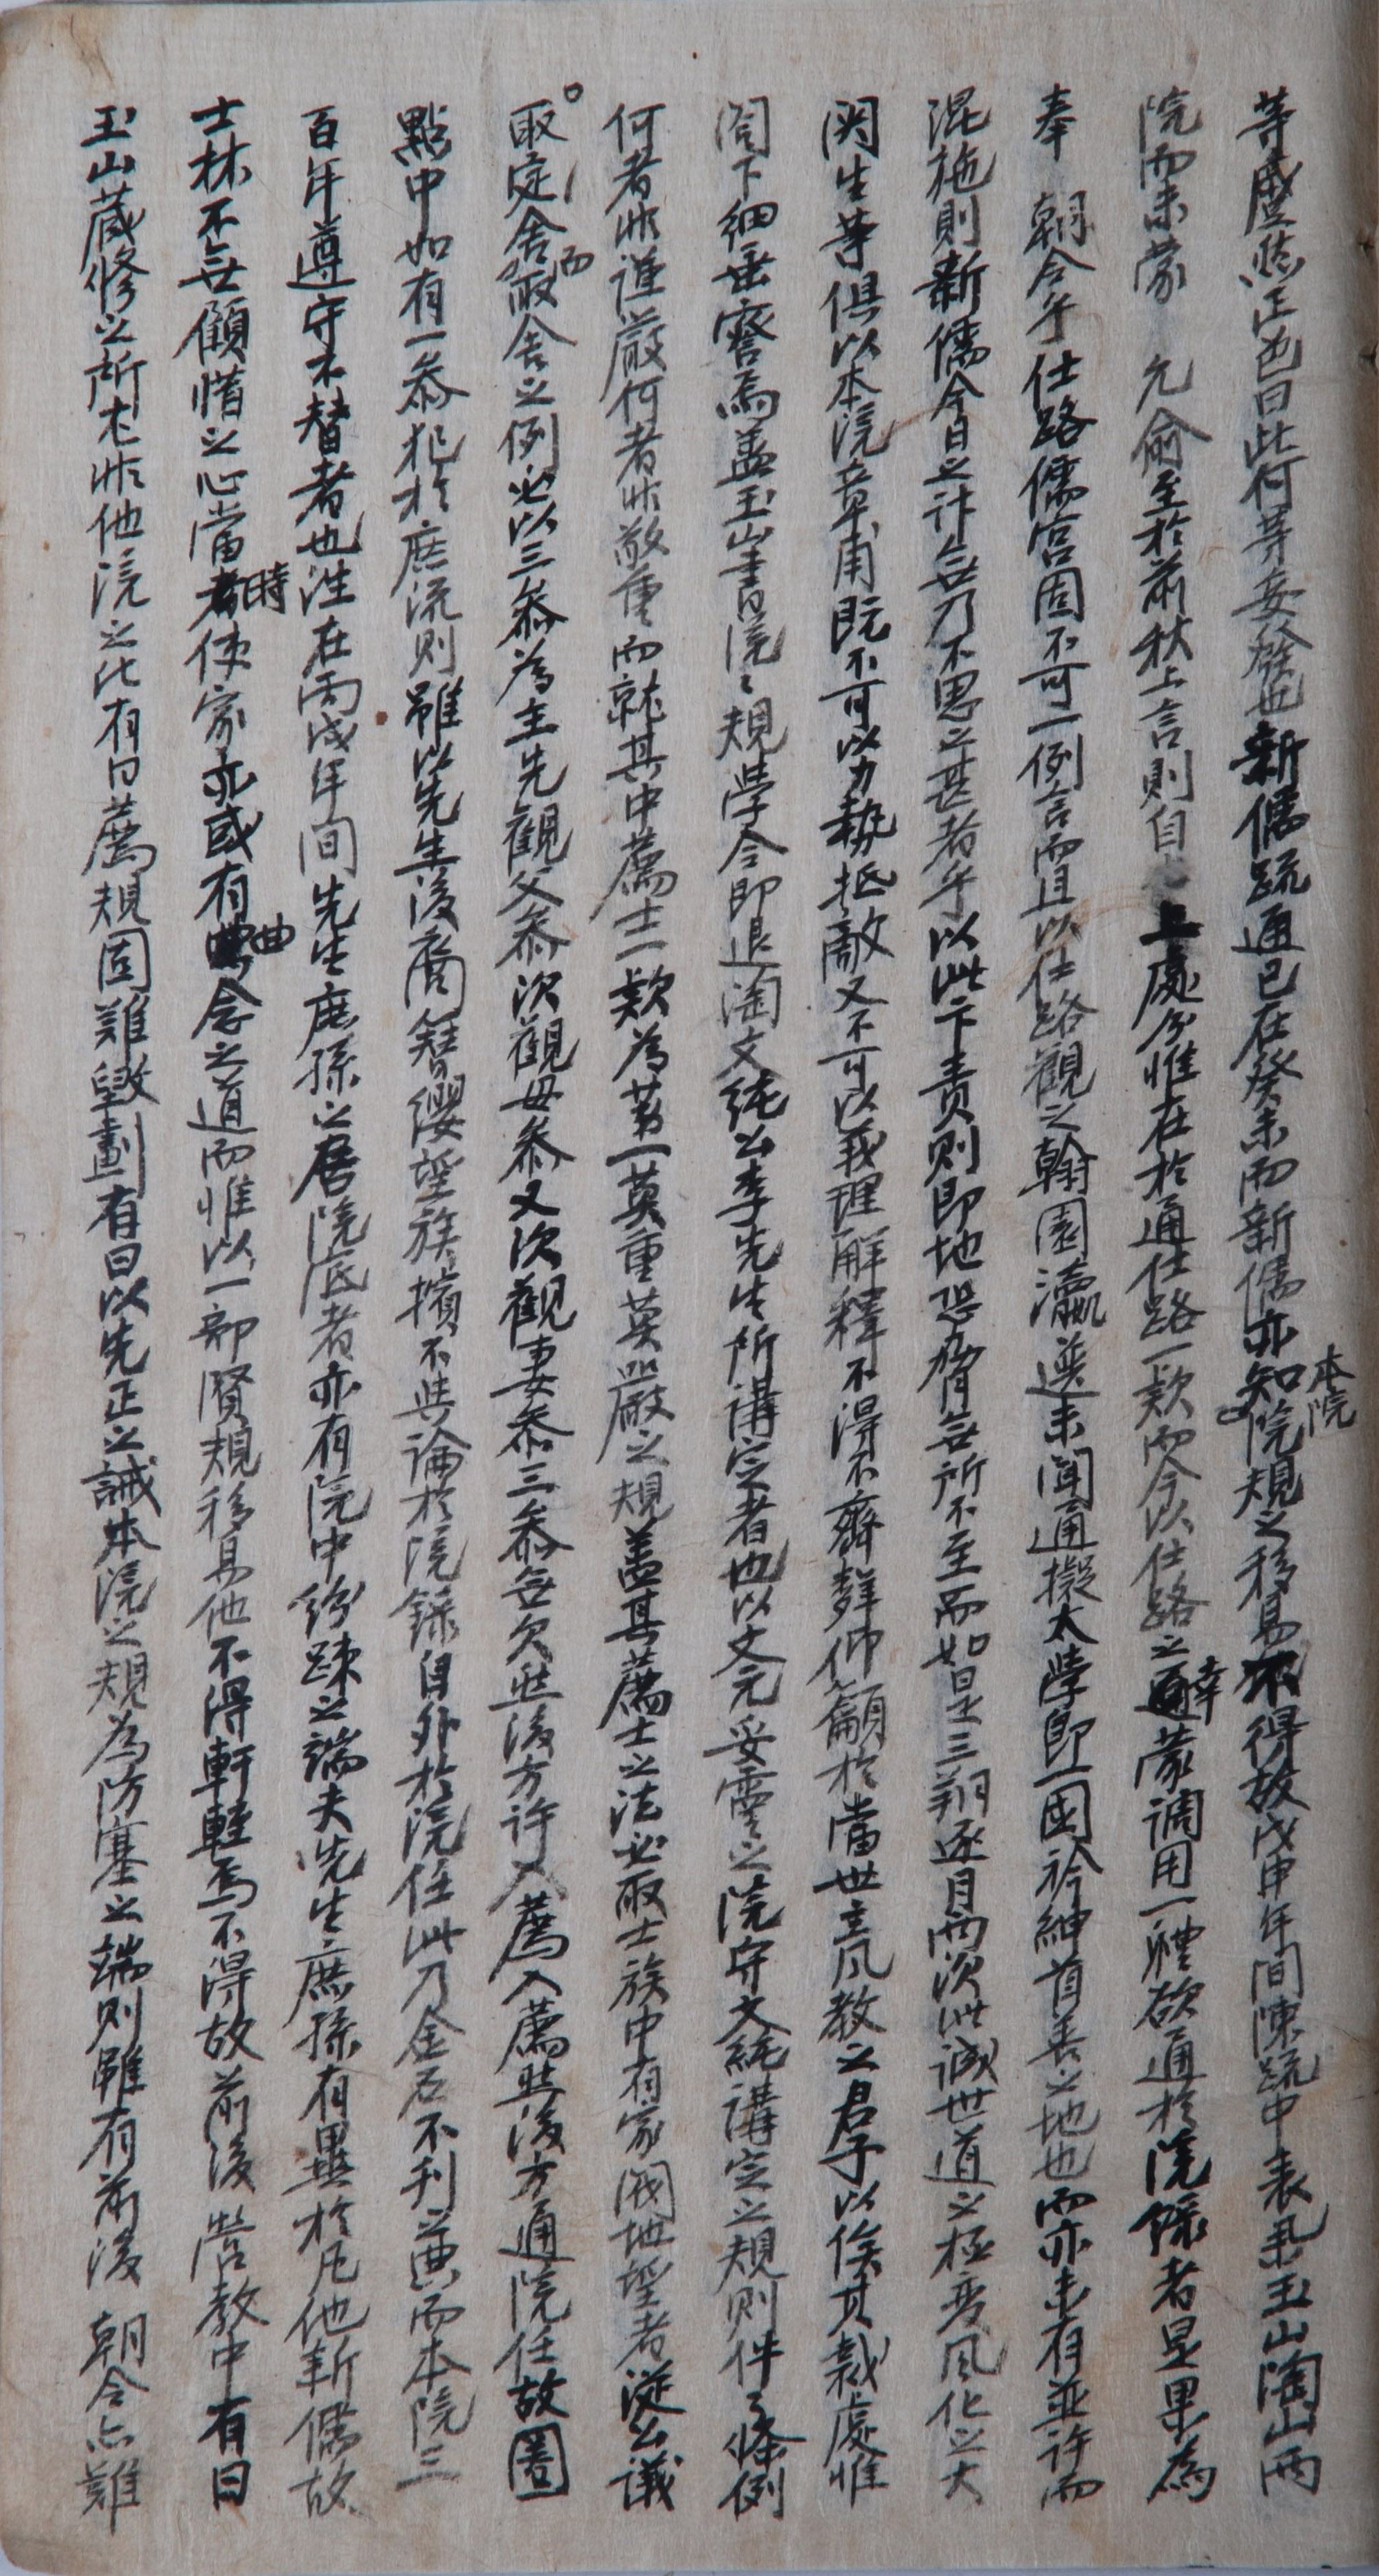 等慮悠正色曰此何等妄發也新儒疏通已在癸未而新儒亦知本院院規之移易不得故戊申年間陳疏中表某玉山陶山兩
院而未蒙 允兪至於前秋上言則自 上處分惟在於通仕路一款而今以仕路之通幸蒙調用一體欲通於院錄者是果爲
奉 朝令乎仕路儒宮固不可一例言而且以仕路觀之翰圈瀛選未聞通擬太學卽一國衿紳首善之地也而亦未有並許而
混施則新儒今日之計無乃不思之甚者乎以此下責則卽地恐脅無所不至而如是三朔逐月兩次此誠世道之極變風化之大
関生等俱以本院章甫既不可以力勢抵敵又不可以義理解釋不得不齊群仰籲於當世主風敎之君子以俟其裁處惟
閤下細垂察焉盖玉山書院之規學令卽退陶文純公李先生所講定者也以文元妥靈之院守文純講定之規則件々條例
何者非謹嚴何者非敬重而就其中薦士一款爲第一莫重莫嚴之規盖其薦士之法必取士族中有家閥地望者從公議
取定舍而取舍之例必以三叅爲主先觀父叅次觀母叅又次觀妻叅三叅無欠然後方許入薦入薦然後方通院任故圈
點中如有一叅犯於庶流則雖以先生後裔簪纓望族擯不與論於院錄自外於院任此乃金石不刊之典而本院三
百年遵守不替者也往在丙戌年間先生庶孫之居院底者亦有院中紛踈之端夫先生庶孫有異於凡他新儒故
士林不無顧惜之心當時使家亦或有曲念之道而惟以一部賢規移易他不得軒輊焉不得故前後 營敎中有曰
玉山藏修之所尤非他院之比有曰薦規固難毁劃有曰以先正之誡本院之規爲防塞之端則雖有前後 朝令亦難